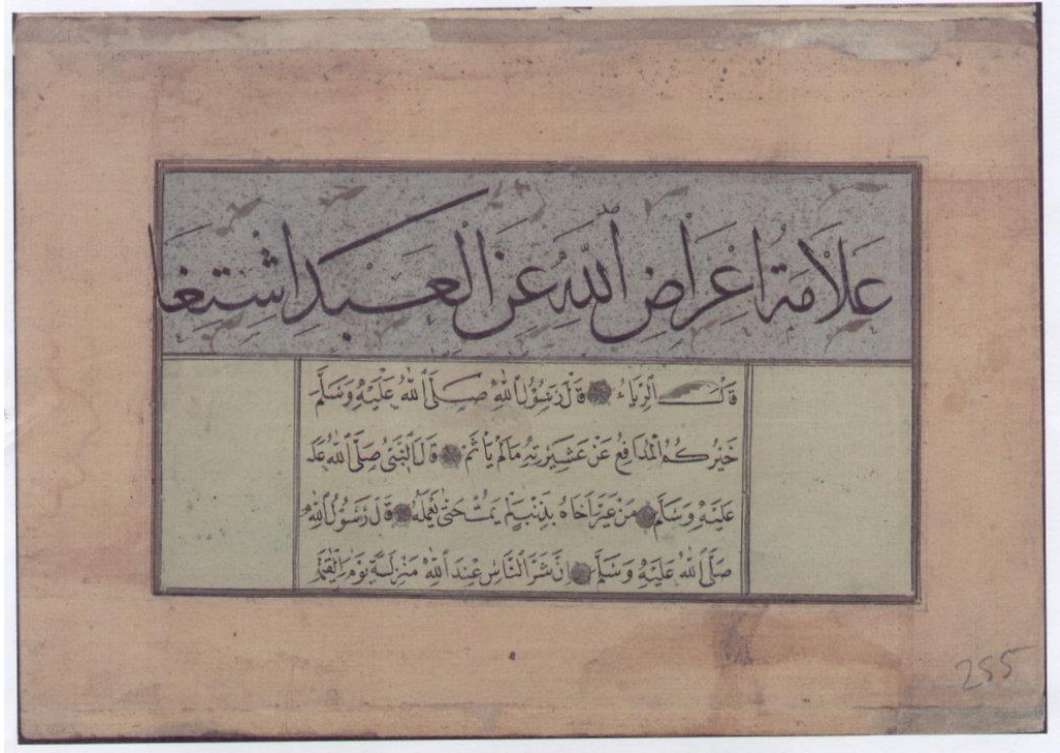 عَلَامَةُ اِعْرَاضِ ٱللّٰهِ عَنِ الْعَبْدِ اشْتِغَا
قَالَ اَلرِّيَاءُ قَالَ رَسُوْلُ اللّٰهِ صَلَّى ٱللّٰهُ عَلَيْهِ وَسَلَّمَ
خَيْرُكُمُ الْمُدَافِعُ عَنْ عَشِيْرَتِهِ مَالَمْ يَأْثَمْ قَالَ النَّبِىُّ صَلَّى ٱللّٰهُ عَلَ
عَلَيْهِ وَسَلَّمَ مَنْ عَيَّرَ اَخَاهُ بِذَنْبٍ لَمْ يَمُتْ حَتّٰى يَعْمَلَهُ قَالَ رَسُوْلُ اللّٰهِ
صَلَّى ٱللّٰهُ عَلَيْهِ وَسَلَّمَ اِنَّ شَرَّ النَّاسِ عِنْدَ اللّٰهِ مَنْزِلَةً يَوْمَ الْقِيٰمَةِ
255